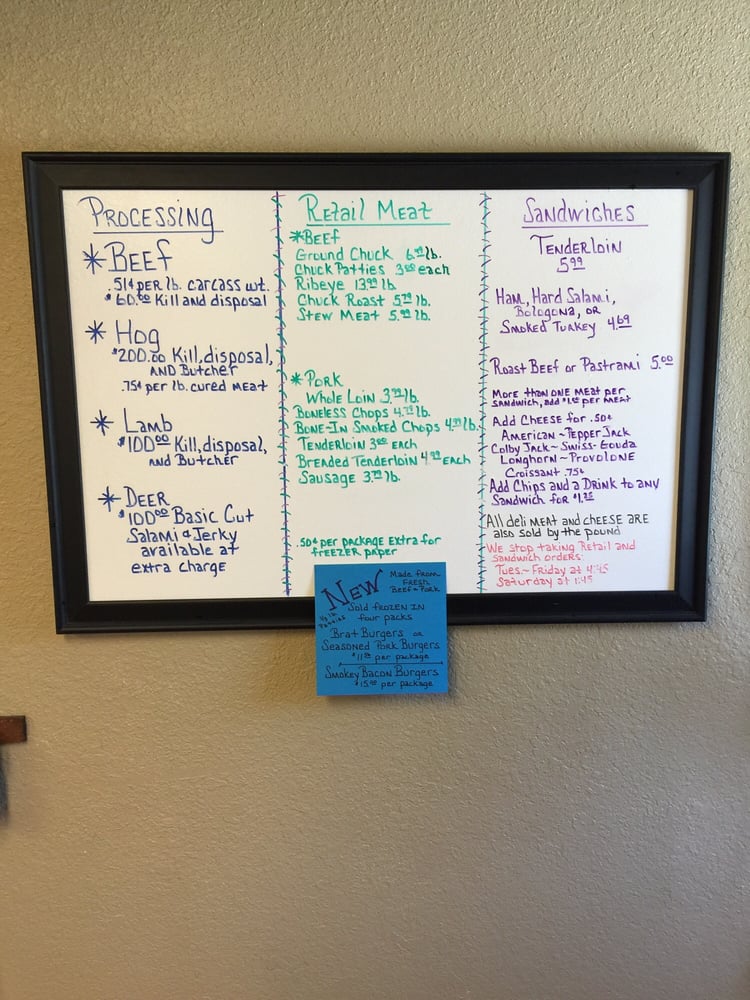 Processing
*Beef
.51¢ per lb. carcass wt.
$60.00 Kill and disposal
*Hog
$200.00 Kill, disposal,
and Butcher
.75¢ per lb. cured meat
*Lamb
$100.00 Kill, disposal,
and Butcher
*Deer
$100.00 Basic Cut
Salami & Jerky
available at
extra charge
Retail Meat
*Beef
Ground Chuck lb.
Chuck Patties 3.00 each
Ribeye 13.99 lb.
Chuck Roast lb.
Stew Meat 5.99 lb.
*Pork
Whole Loin lb.
Boneless Chops lb.
Bone-In Smoked Chops lb.
Tenderloin 3.00 each
Breaded Tenderloin each
Sausage lb.
.50¢ per package extra for
freezer paper
New
Made from
Fresh
Beef + Pork
1/3 lb.
Patties
Sold frozen in
four packs
Brat Burgers or
Seasoned Pork Burgers
per package
Smokey Bacon Burgers
per package
Sandwiches
Tenderloin
5.99
Ham, Hard Salami,
Bologona, or
Smoked Turkey 4.69
Roast Beef or Pastrami 5.00
More than one meat per
sandwich, add per meat
Add Cheese for .50¢
American ~ Pepper Jack
Colby Jack ~ Swiss ~ Gouda
Longhorn ~ Provolone
Croissant .75¢
Add Chips and a Drink to any
Sandwich for
All deli meat and cheese are
also sold by the pound
We stop taking Retail and
sandwich orders:
Tues. ~ Friday at 4:45
Saturday at 1:45